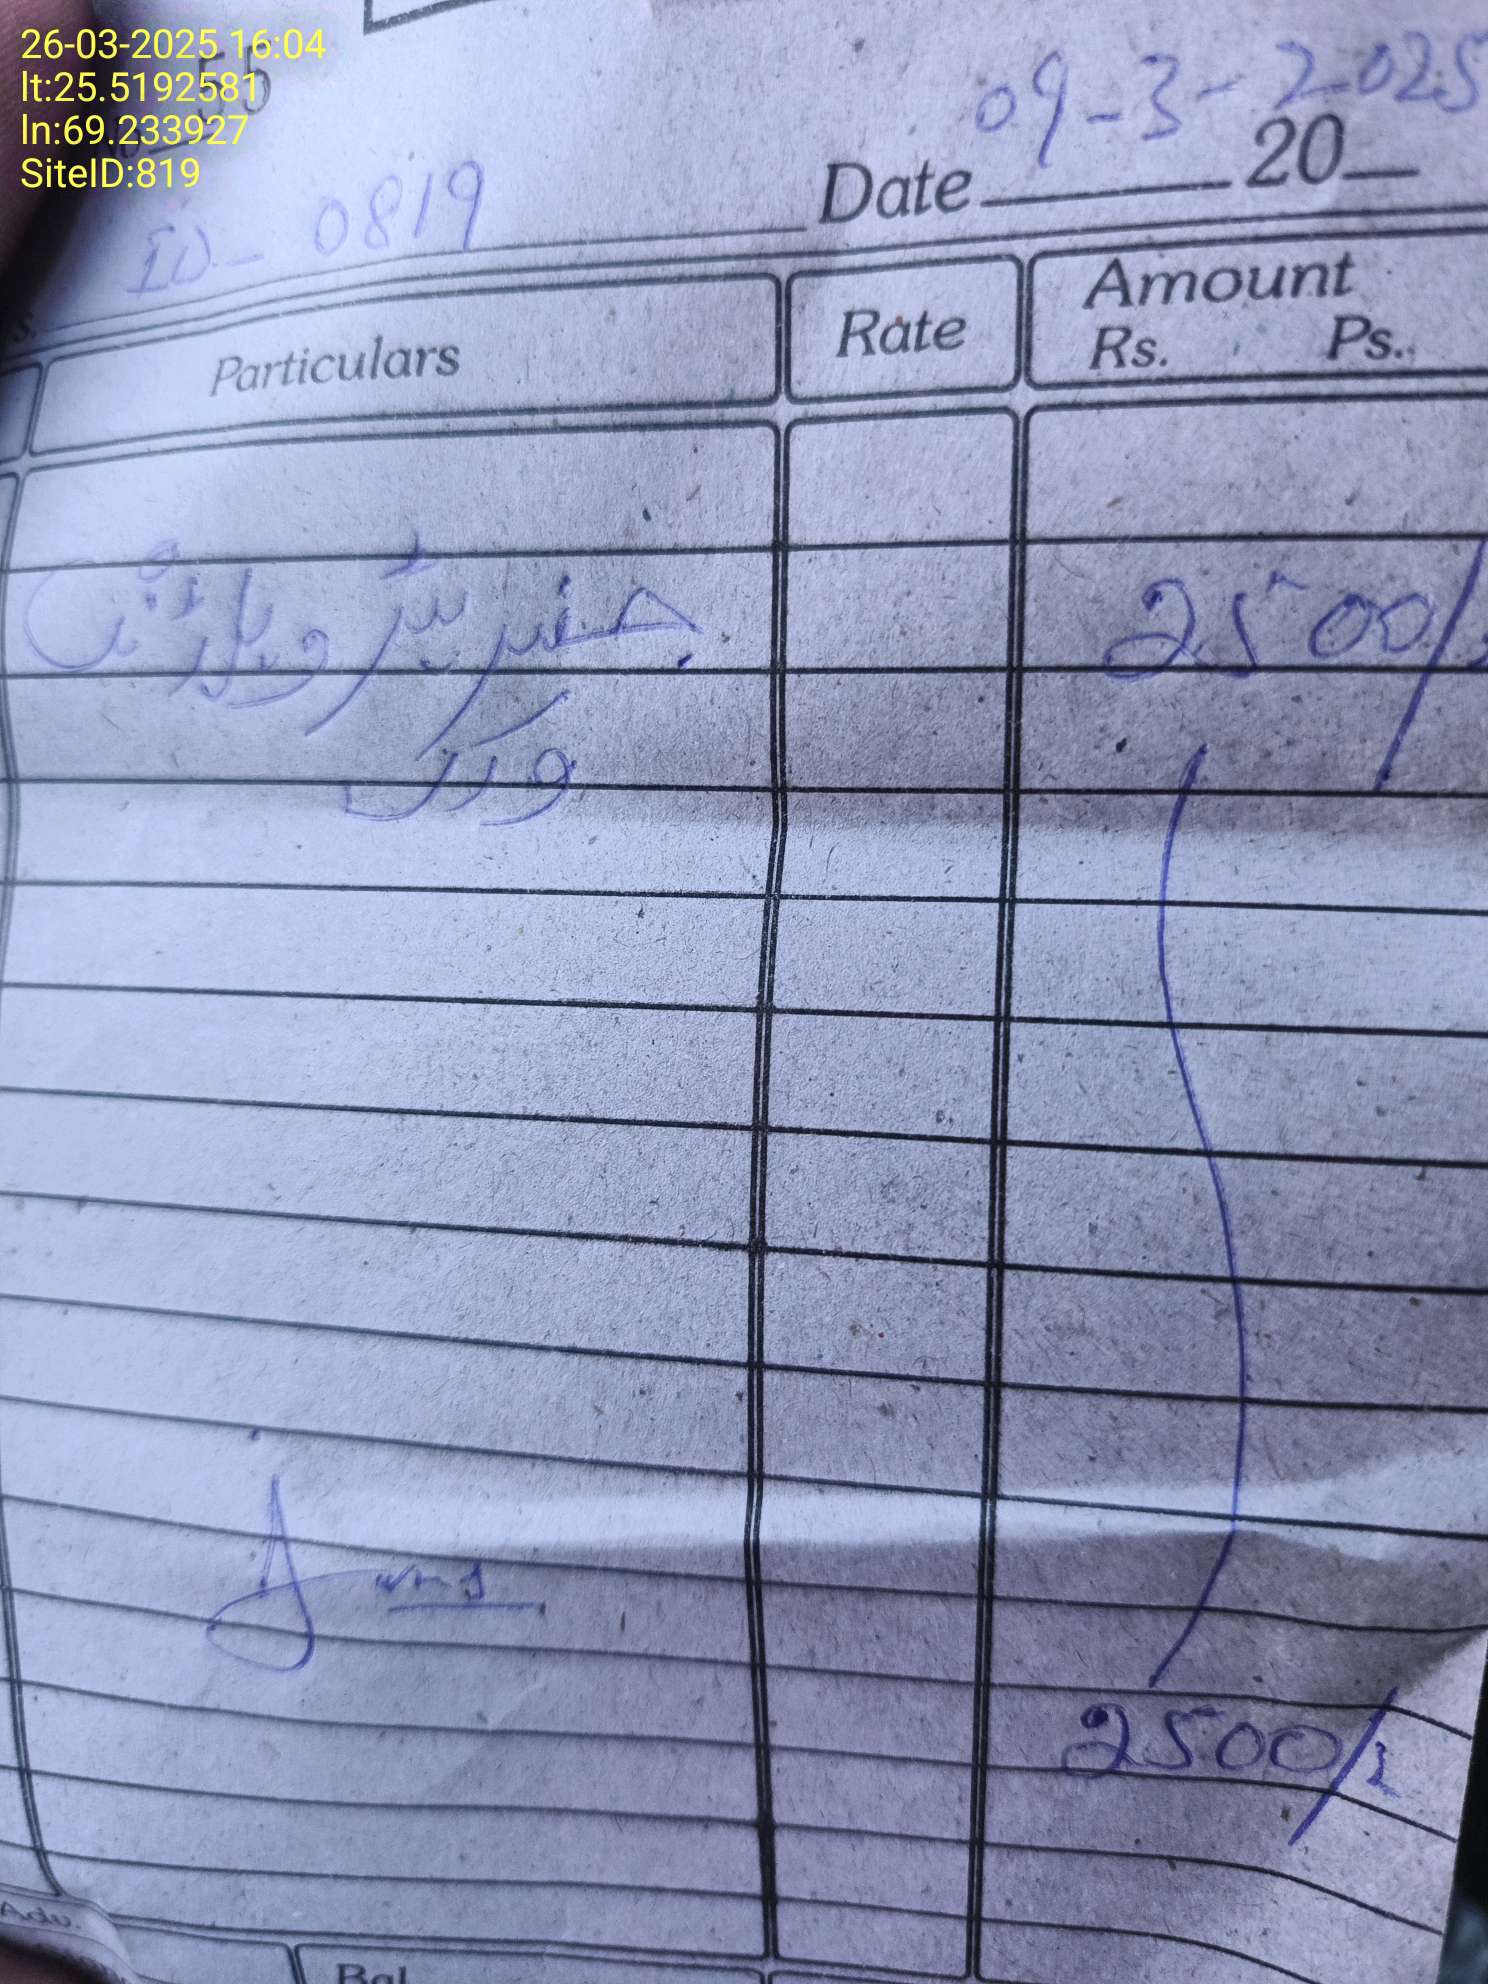 26-03-2025 16:04
lt:25.5192581
ln:69.233927
SiteID:819
55
09-3-2025
Date 20
ID - 0819
Particulars Rate Amount
Rs. Ps.
جنریٹر وائرنگ 2500/
ورک
2500/
Adv.
Bal